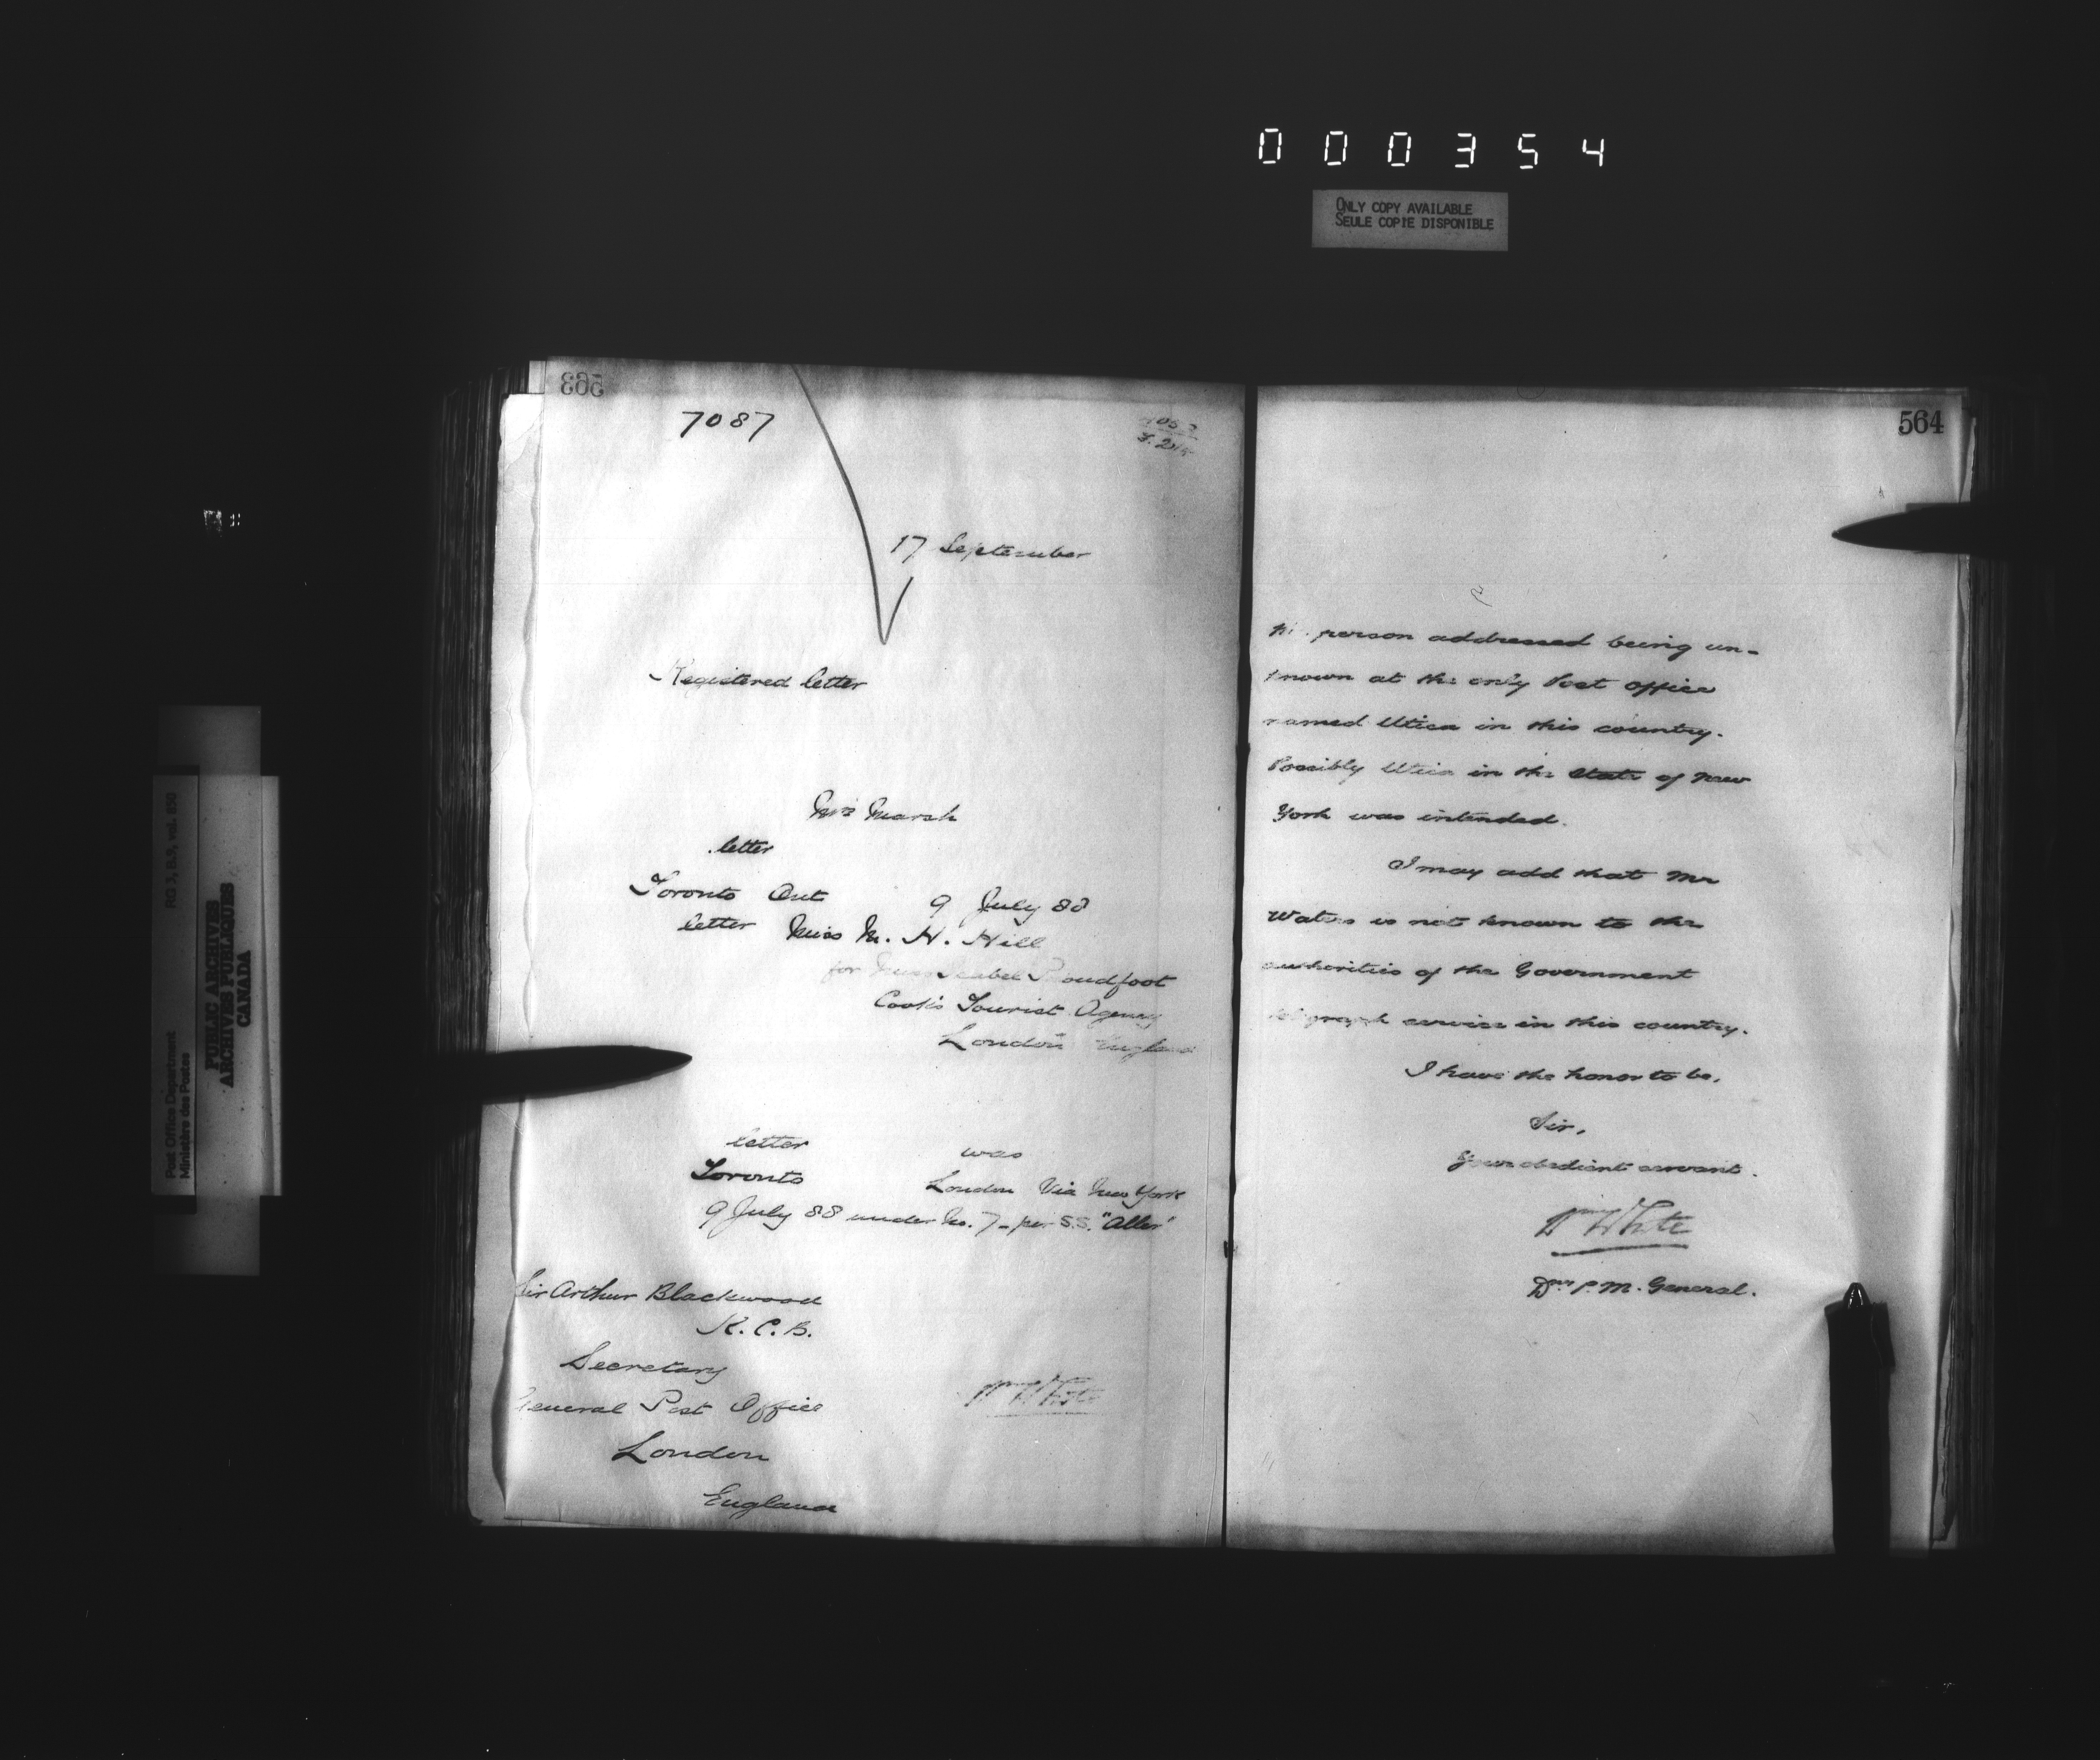 000354
ONLY COPY AVAILABLE
SEULE COPIE DISPONIBLE
Post Office Department
Ministère des Postes
RG 3, B.3, vol. 650
PUBLIC ARCHIVES
ARCHIVES PUBLIQUES
CANADA
563
7087
17 September
Registered letter
Mrs Marsh
letter
Toronto Ont 9 July 88
letter Miss M. H. Hill
for Miss Isabel Proudfoot
Cook's Tourist Agency
London England
letter was
Toronto London Via New York
9 July 88 under No. 7 - per S.S. "Aller"
Sir Arthur Blackwood
K.C.B.
Secretary
General Post Office
London
England
Wm White
564
person addressed being un-
known at the only Post Office
named Utica in this country.
Possibly Utica in the State of New
York was intended.
I may add that Mr
Waters is not known to the
authorities of the Government
telegraph service in this country.
I have the honor to be,
Sir,
Your obedient servant.
Wm White
D. P. M. General.